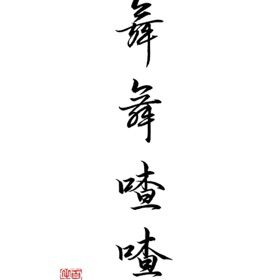 舞舞喳喳